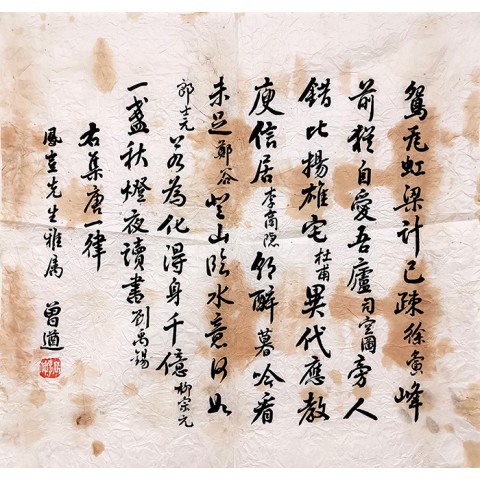 鴛瓦虹梁計已疎徐寅峰
前猶自愛吾廬司空圖旁人
錯比揚雄宅杜甫異代應教
庾信居李商隱朝醉暮吟看
未足鄭谷登山臨水意何如
郎士元若為化得身千億柳宗元
一盞秋燈夜讀書劉禹錫
右集唐一律
鳳先生雅屬 曾遒